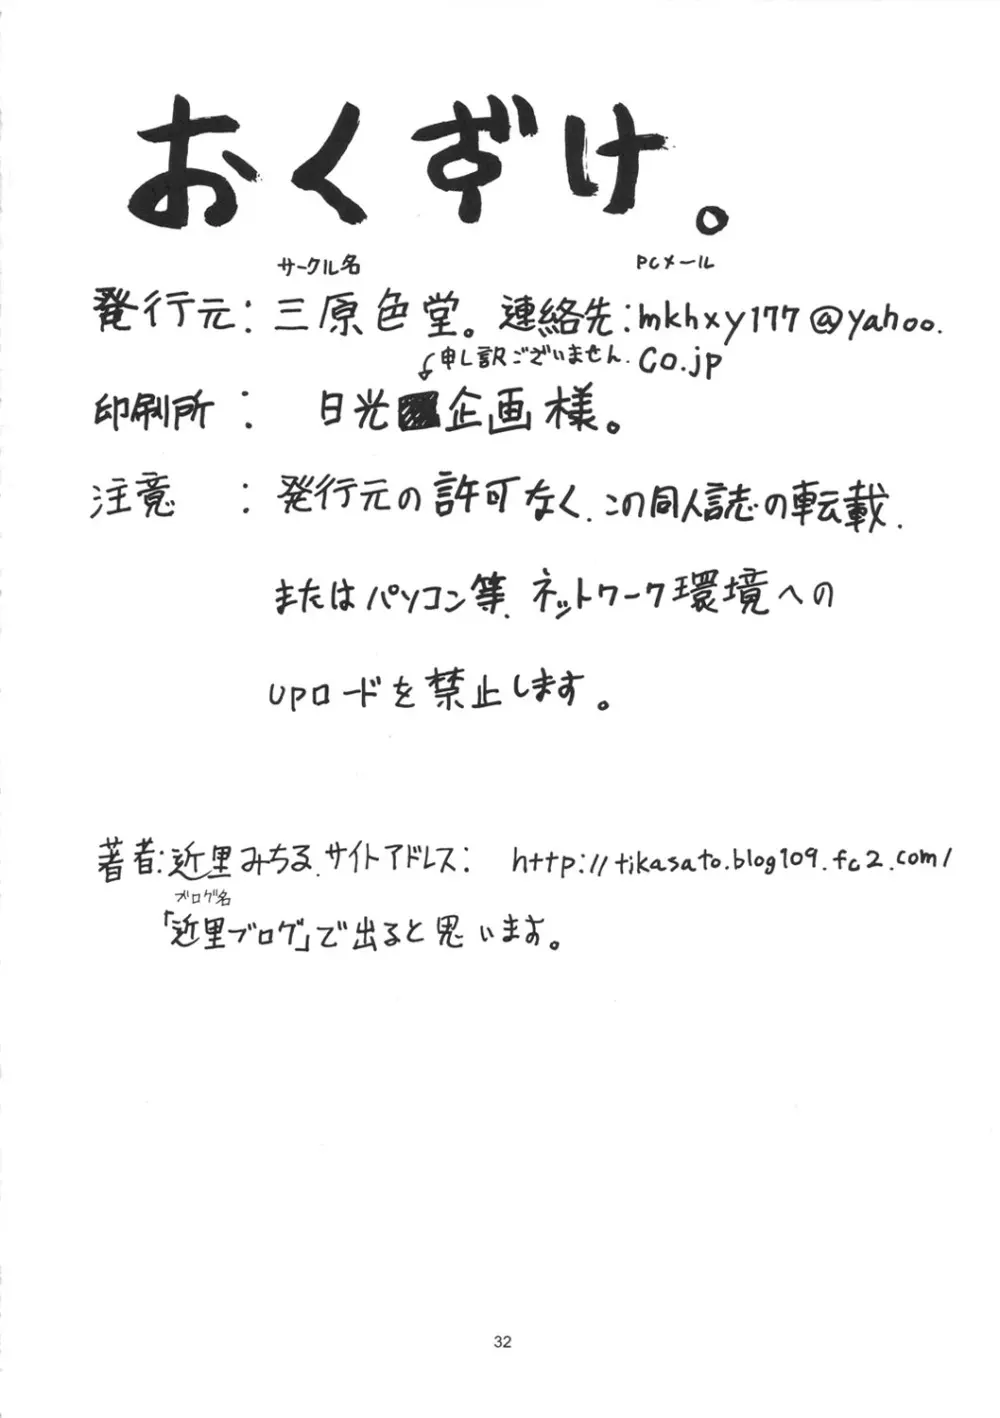 おくずけ。
サークル名 PCメール
発行元：三原色堂。連絡先：mkhxy177@yahoo.
申し訳ございません. co.jp
印刷所： 日光企画様。
注意 ： 発行元の許可なく、この同人誌の転載、
またはパソコン等、ネットワーク環境への
upロードを禁止します。
著者：近里みちる、サイトアドレス： http://tikasato.blog109.fc2.com/
ブログ名
「近里ブログ」で出ると思います。
32